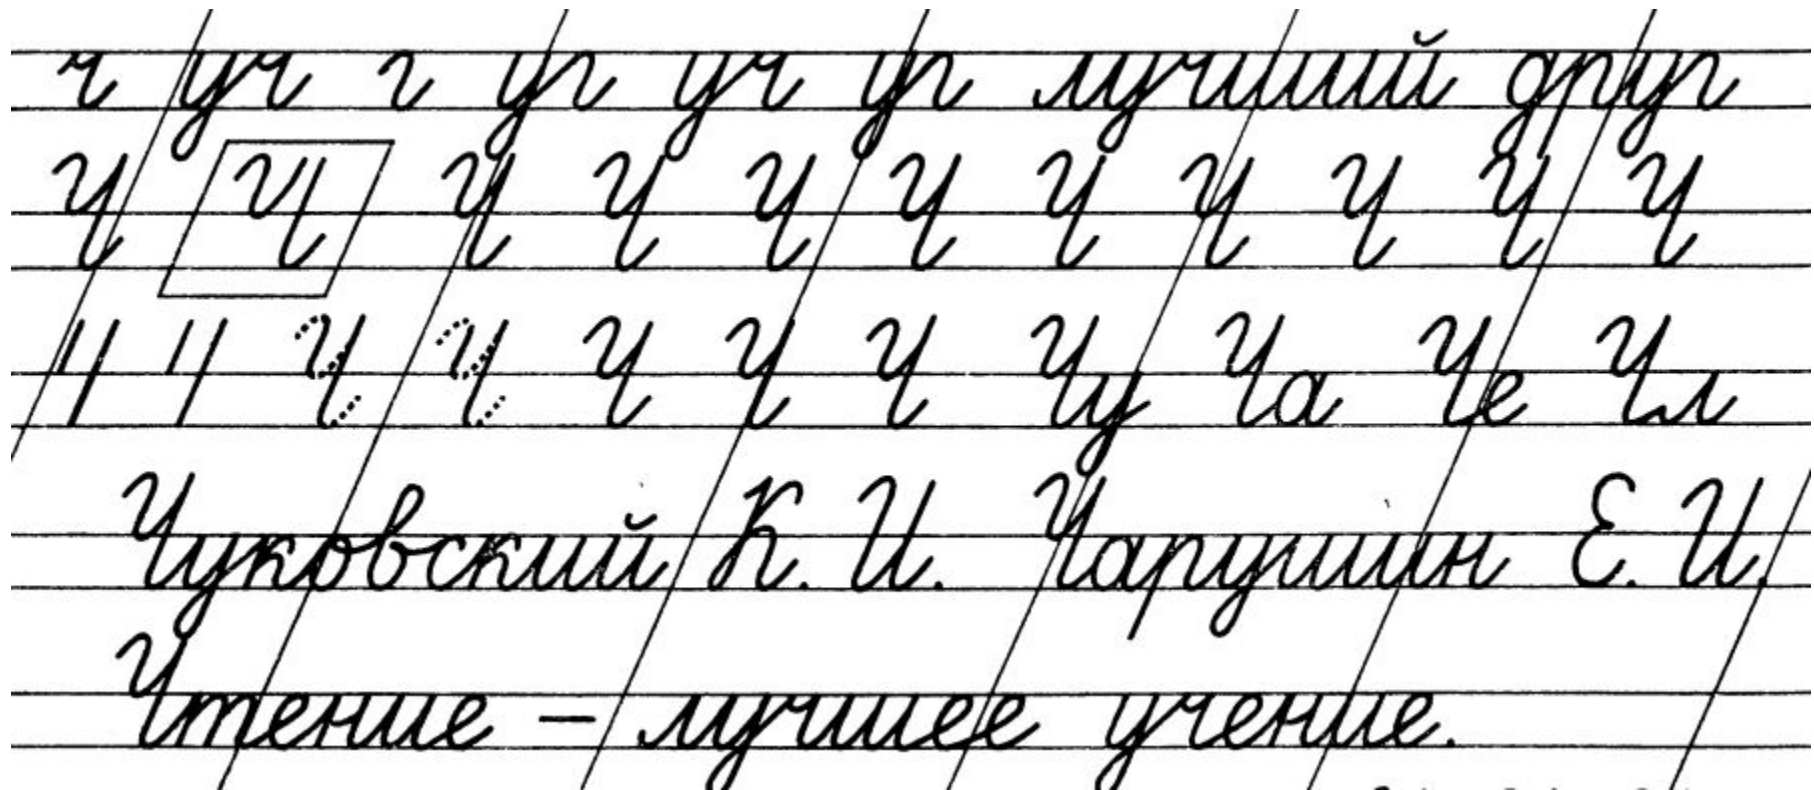 ч уч г уг уч уг лучший друг
Ч Ч Ч Ч Ч Ч Ч Ч Ч Ч Ч
Ч Ч Ч Ч Ч Ч Ч Чу Ча Че Чл
Чуковский К. И. Чарушин Е. И.
Чтение – лучшее учение.